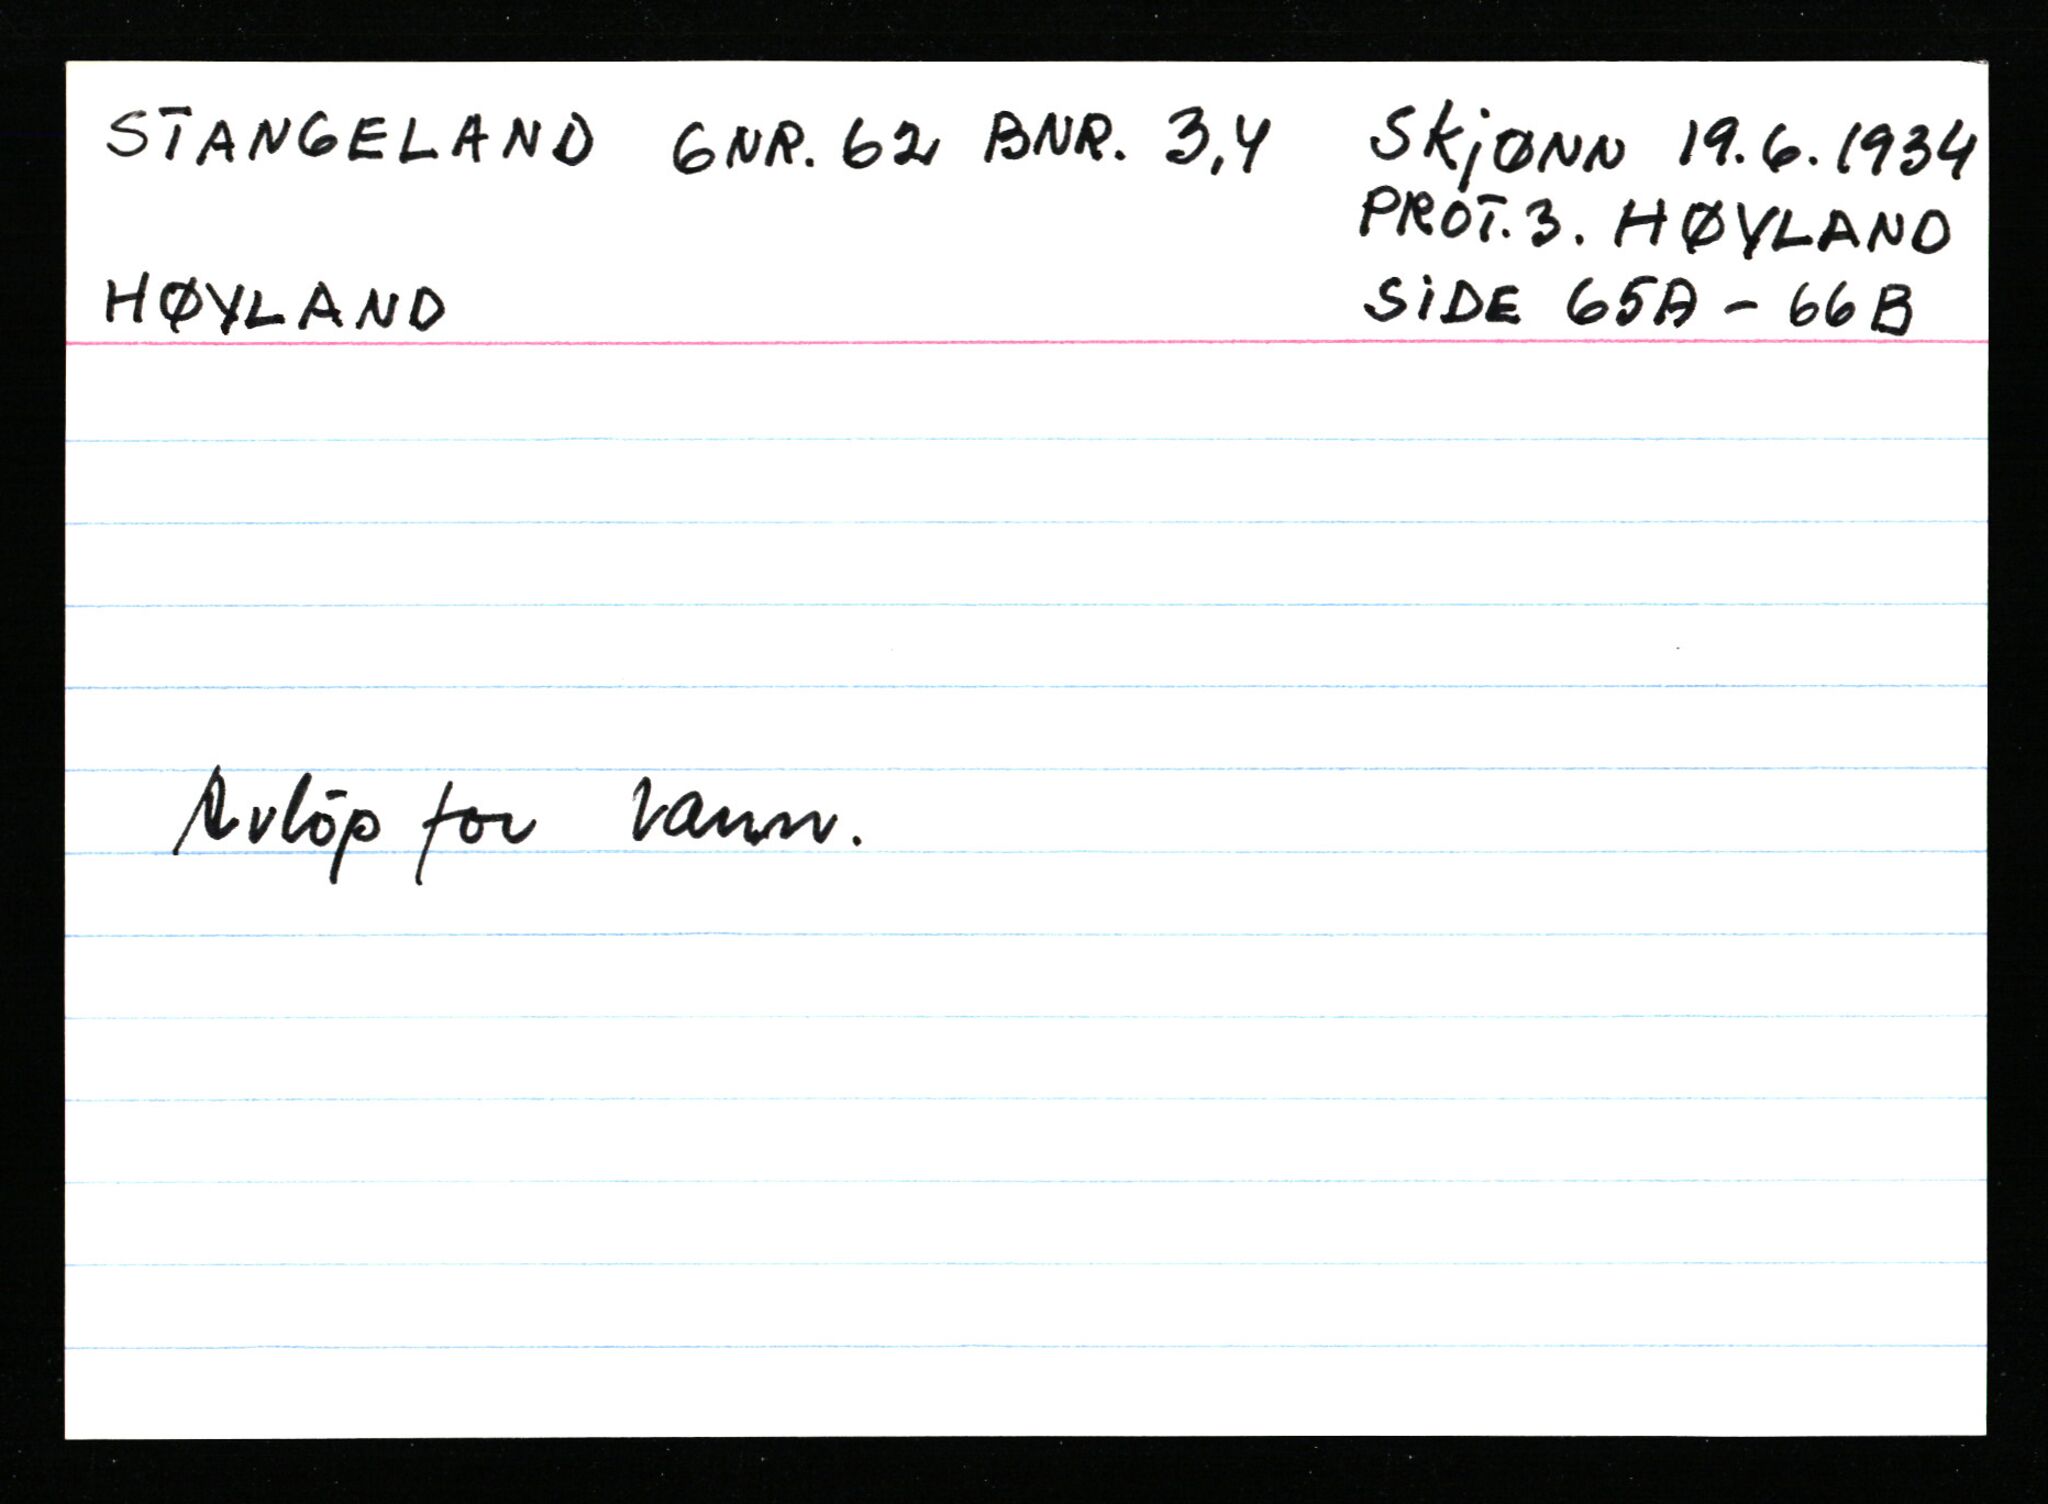 STANGELAND GNR. 62 BNR. 3,4 Skjønn 19.6.1934
PROT. 3. HØYLAND
HØYLAND SiDE 65A - 66B
Avlöp for vann.